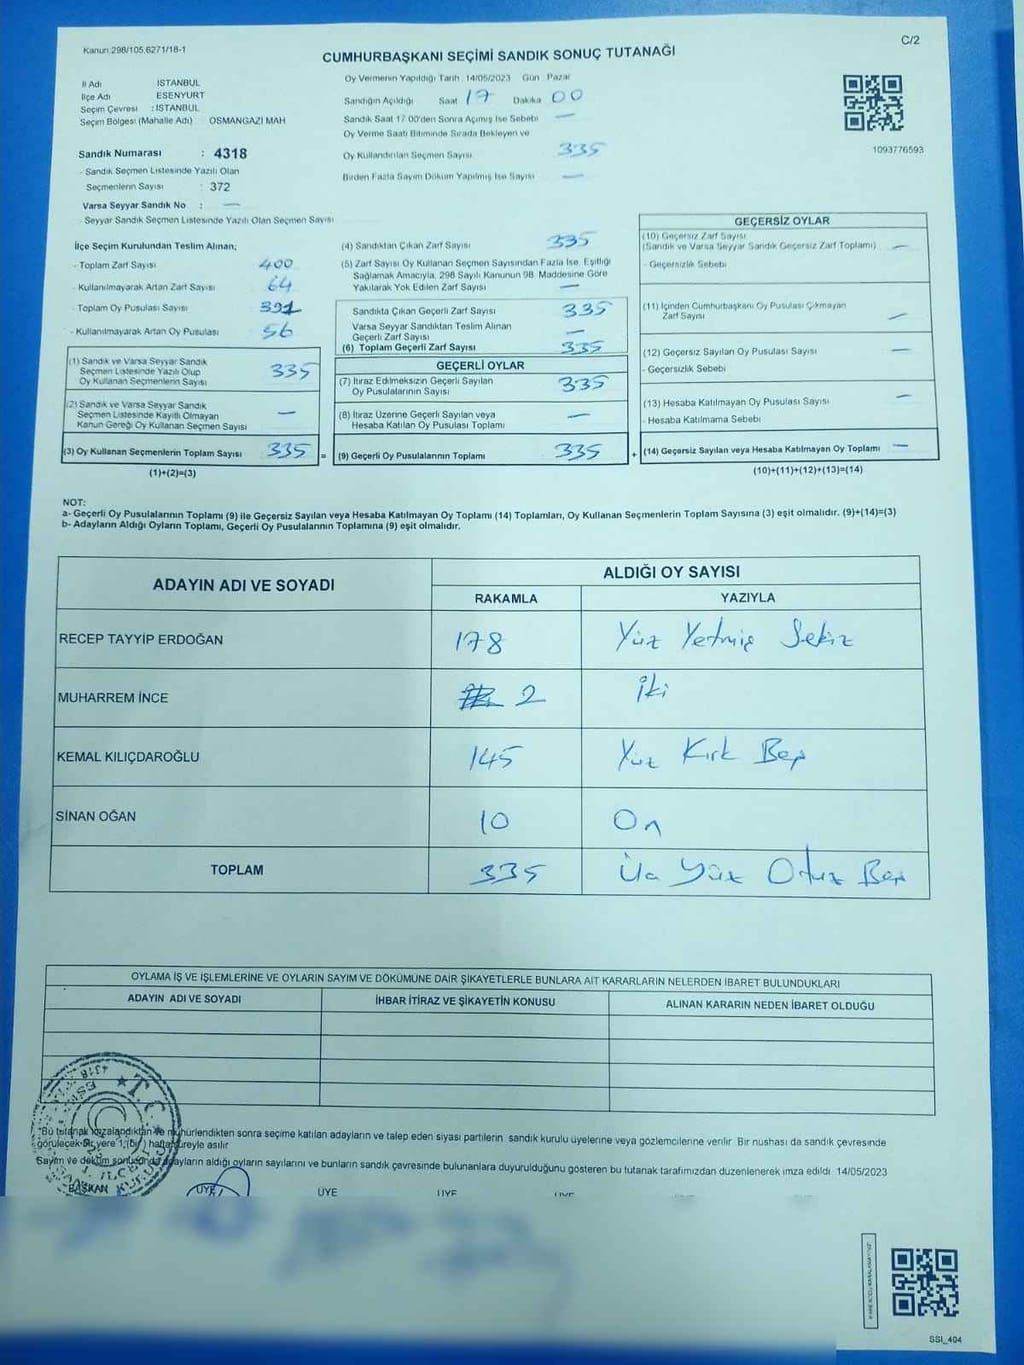 Kanun:298/105,6271/18-1
C/2
CUMHURBAŞKANI SEÇİMİ SANDIK SONUÇ TUTANAĞI
İl Adı İSTANBUL
İlçe Adı ESENYURT
Seçim Çevresi : İSTANBUL
Seçim Bölgesi (Mahalle Adı) OSMANGAZİ MAH
Sandık Numarası : 4318
- Sandık Seçmen Listesinde Yazılı Olan
Seçmenlerin Sayısı : 372
Varsa Seyyar Sandık No : —
- Seyyar Sandık Seçmen Listesinde Yazılı Olan Seçmen Sayısı
Oy Vermenin Yapıldığı Tarih : 14/05/2023 Gün : Pazar
Sandığın Açıldığı Saat 17 Dakika 00
Sandık Saat 17:00'den Sonra Açılmış İse Sebebi —
Oy Verme Saati Bitiminde Sırada Bekleyen ve
Oy Kullandırılan Seçmen Sayısı 335
Birden Fazla Sayım Döküm Yapılmış İse Sayısı —
1093776593
İlçe Seçim Kurulundan Teslim Alınan;
- Toplam Zarf Sayısı 400
- Kullanılmayarak Artan Zarf Sayısı 64
- Toplam Oy Pusulası Sayısı 391
- Kullanılmayarak Artan Oy Pusulası 56
(1) Sandık ve Varsa Seyyar Sandık
Seçmen Listesinde Yazılı Olup
Oy Kullanan Seçmenlerin Sayısı 335
(2) Sandık ve Varsa Seyyar Sandık
Seçmen Listesinde Kayıtlı Olmayan
Kanun Gereği Oy Kullanan Seçmen Sayısı —
(3) Oy Kullanan Seçmenlerin Toplam Sayısı 335
(1)+(2)=(3)
(4) Sandıktan Çıkan Zarf Sayısı 335
(5) Zarf Sayısı Oy Kullanan Seçmen Sayısından Fazla İse, Eşitliği
Sağlamak Amacıyla, 298 Sayılı Kanunun 98. Maddesine Göre
Yakılarak Yok Edilen Zarf Sayısı —
Sandıkta Çıkan Geçerli Zarf Sayısı 335
Varsa Seyyar Sandıktan Teslim Alınan
Geçerli Zarf Sayısı —
(6) Toplam Geçerli Zarf Sayısı 335
GEÇERLİ OYLAR
(7) İtiraz Edilmeksizin Geçerli Sayılan
Oy Pusulalarının Sayısı 335
(8) İtiraz Üzerine Geçerli Sayılan veya
Hesaba Katılan Oy Pusulası Toplamı —
= (9) Geçerli Oy Pusulalarının Toplamı 335 +
GEÇERSİZ OYLAR
(10) Geçersiz Zarf Sayısı
(Sandık ve Varsa Seyyar Sandık Geçersiz Zarf Toplamı) —
- Geçersizlik Sebebi
(11) İçinden Cumhurbaşkanı Oy Pusulası Çıkmayan
Zarf Sayısı —
(12) Geçersiz Sayılan Oy Pusulası Sayısı —
- Geçersizlik Sebebi
(13) Hesaba Katılmayan Oy Pusulası Sayısı —
- Hesaba Katılmama Sebebi
(14) Geçersiz Sayılan veya Hesaba Katılmayan Oy Toplamı —
(10)+(11)+(12)+(13)=(14)
NOT:
a- Geçerli Oy Pusulalarının Toplamı (9) ile Geçersiz Sayılan veya Hesaba Katılmayan Oy Toplamı (14) Toplamları, Oy Kullanan Seçmenlerin Toplam Sayısına (3) eşit olmalıdır. (9)+(14)=(3)
b- Adayların Aldığı Oyların Toplamı, Geçerli Oy Pusulalarının Toplamına (9) eşit olmalıdır.
ADAYIN ADI VE SOYADI
ALDIĞI OY SAYISI
RAKAMLA YAZIYLA
RECEP TAYYİP ERDOĞAN 178 Yüz Yetmiş Sekiz
MUHARREM İNCE 2 İki
KEMAL KILIÇDAROĞLU 145 Yüz Kırk Beş
SİNAN OĞAN 10 On
TOPLAM 335 Üç Yüz Otuz Beş
OYLAMA İŞ VE İŞLEMLERİNE VE OYLARIN SAYIM VE DÖKÜMÜNE DAİR ŞİKAYETLERLE BUNLARA AİT KARARLARIN NELERDEN İBARET BULUNDUKLARI
ADAYIN ADI VE SOYADI İHBAR İTİRAZ VE ŞİKAYETİN KONUSU ALINAN KARARIN NEDEN İBARET OLDUĞU
T.C.
4318
*Bu tutanak imzalandıktan ve mühürlendikten sonra seçime katılan adayların ve talep eden siyasi partilerin sandık kurulu üyelerine veya gözlemcilerine verilir. Bir nüshası da sandık çevresinde
görülecek bir yere 1 (bir) hafta süreyle asılır
Sayım ve döküm sonucunda adayların aldığı oyların sayılarını ve bunların sandık çevresinde bulunanlara duyurulduğunu gösteren bu tutanak tarafımızdan düzenlenerek imza edildi. 14/05/2023
BAŞKAN ÜYE ÜYE ÜYE ÜYE
SSİ_404